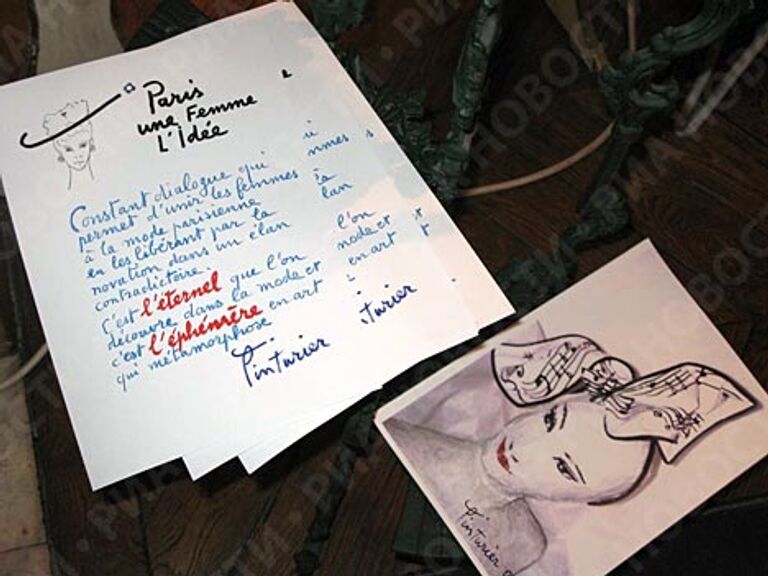 Paris
une Femme
L'Idée
Constant dialogue qui
permet d'unir les femmes
à la mode parisienne
en les libérant par la
novation dans un élan
contradictoire.
C'est l'éternel que l'on
découvre dans la mode et
c'est l'éphémère en art
qui métamorphose
Pinturier
ui
mmes
la
lan
l'on
mode et
en art
inturier
s
it
t
Pinturier
РИА НОВОСТИ